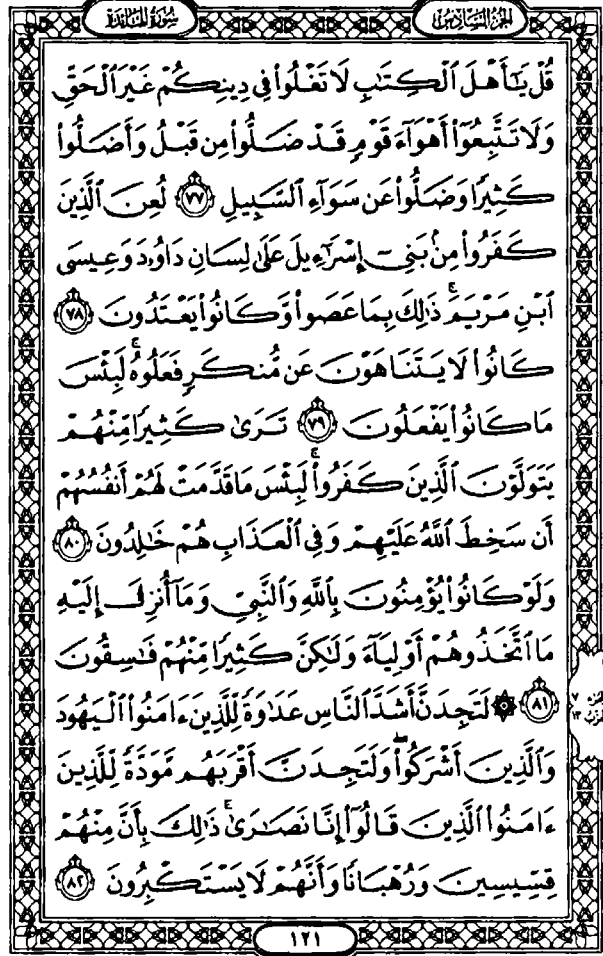 سُورَةُ المَائدَة
الجُزءُ السَّادِسُ
قُلْ يَٰٓأَهْلَ ٱلْكِتَٰبِ لَا تَغْلُوا۟ فِى دِينِكُمْ غَيْرَ ٱلْحَقِّ
وَلَا تَتَّبِعُوٓا۟ أَهْوَآءَ قَوْمٍ قَدْ ضَلُّوا۟ مِن قَبْلُ وَأَضَلُّوا۟
كَثِيرًا وَضَلُّوا۟ عَن سَوَآءِ ٱلسَّبِيلِ ٧٧ لُعِنَ ٱلَّذِينَ
كَفَرُوا۟ مِنۢ بَنِىٓ إِسْرَٰٓءِيلَ عَلَىٰ لِسَانِ دَاوُۥدَ وَعِيسَى
ٱبْنِ مَرْيَمَ ۚ ذَٰلِكَ بِمَا عَصَوا۟ وَّكَانُوا۟ يَعْتَدُونَ ٧٨
كَانُوا۟ لَا يَتَنَاهَوْنَ عَن مُّنكَرٍ فَعَلُوهُ ۚ لَبِئْسَ
مَا كَانُوا۟ يَفْعَلُونَ ٧٩ تَرَىٰ كَثِيرًا مِّنْهُمْ
يَتَوَلَّوْنَ ٱلَّذِينَ كَفَرُوا۟ ۚ لَبِئْسَ مَا قَدَّمَتْ لَهُمْ أَنفُسُهُمْ
أَن سَخِطَ ٱللَّهُ عَلَيْهِمْ وَفِى ٱلْعَذَابِ هُمْ خَٰلِدُونَ ٨٠
وَلَوْ كَانُوا۟ يُؤْمِنُونَ بِٱللَّهِ وَٱلنَّبِىِّ وَمَآ أُنزِلَ إِلَيْهِ
مَا ٱتَّخَذُوهُمْ أَوْلِيَآءَ وَلَٰكِنَّ كَثِيرًا مِّنْهُمْ فَٰسِقُونَ
٨١ ۞ لَتَجِدَنَّ أَشَدَّ ٱلنَّاسِ عَدَٰوَةً لِّلَّذِينَ ءَامَنُوا۟ ٱلْيَهُودَ
وَٱلَّذِينَ أَشْرَكُوا۟ ۖ وَلَتَجِدَنَّ أَقْرَبَهُم مَّوَدَّةً لِّلَّذِينَ
ءَامَنُوا۟ ٱلَّذِينَ قَالُوٓا۟ إِنَّا نَصَٰرَىٰ ۚ ذَٰلِكَ بِأَنَّ مِنْهُمْ
قِسِّيسِينَ وَرُهْبَانًا وَأَنَّهُمْ لَا يَسْتَكْبِرُونَ ٨٢
١٢١